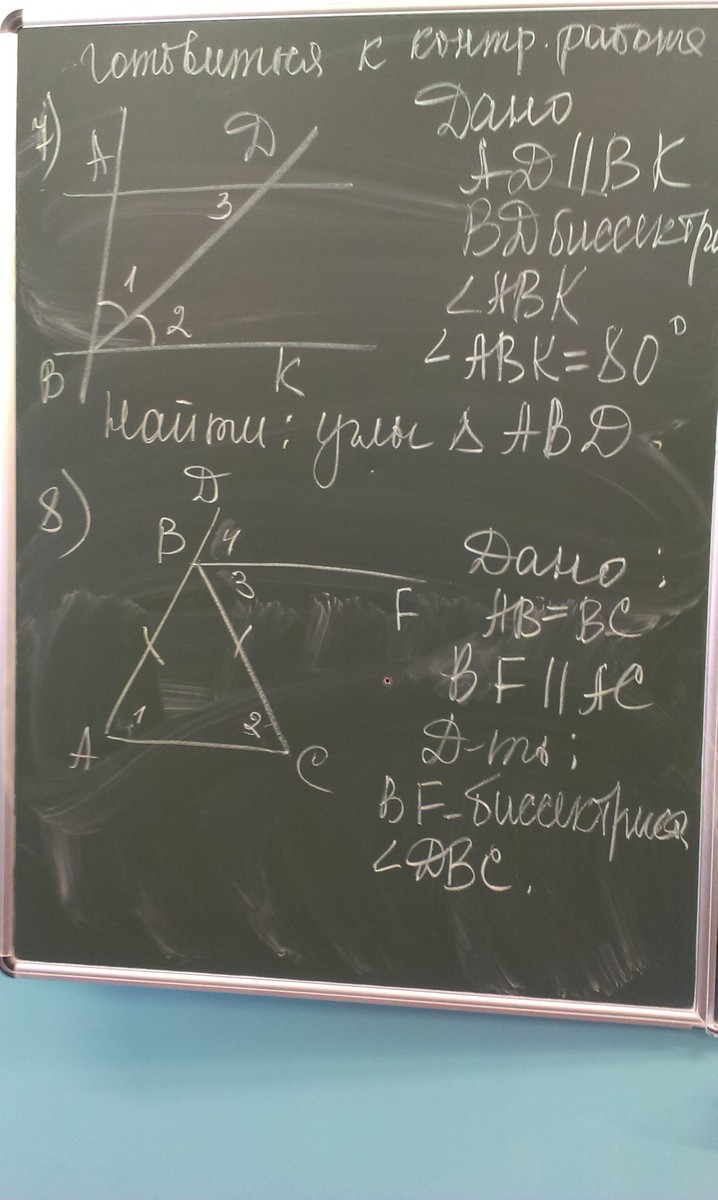 готовиться к контр. работе
7)
A
D
3
1
2
B
K
Дано
AD || BK
BD биссектри
∠ABK
∠ABK = 80°
Найти: углы △ ABD.
8)
D
B
4
3
F
A
1
2
C
Дано:
AB = BC
BF || AC
Д-ть:
BF - биссектриса
∠DBC.